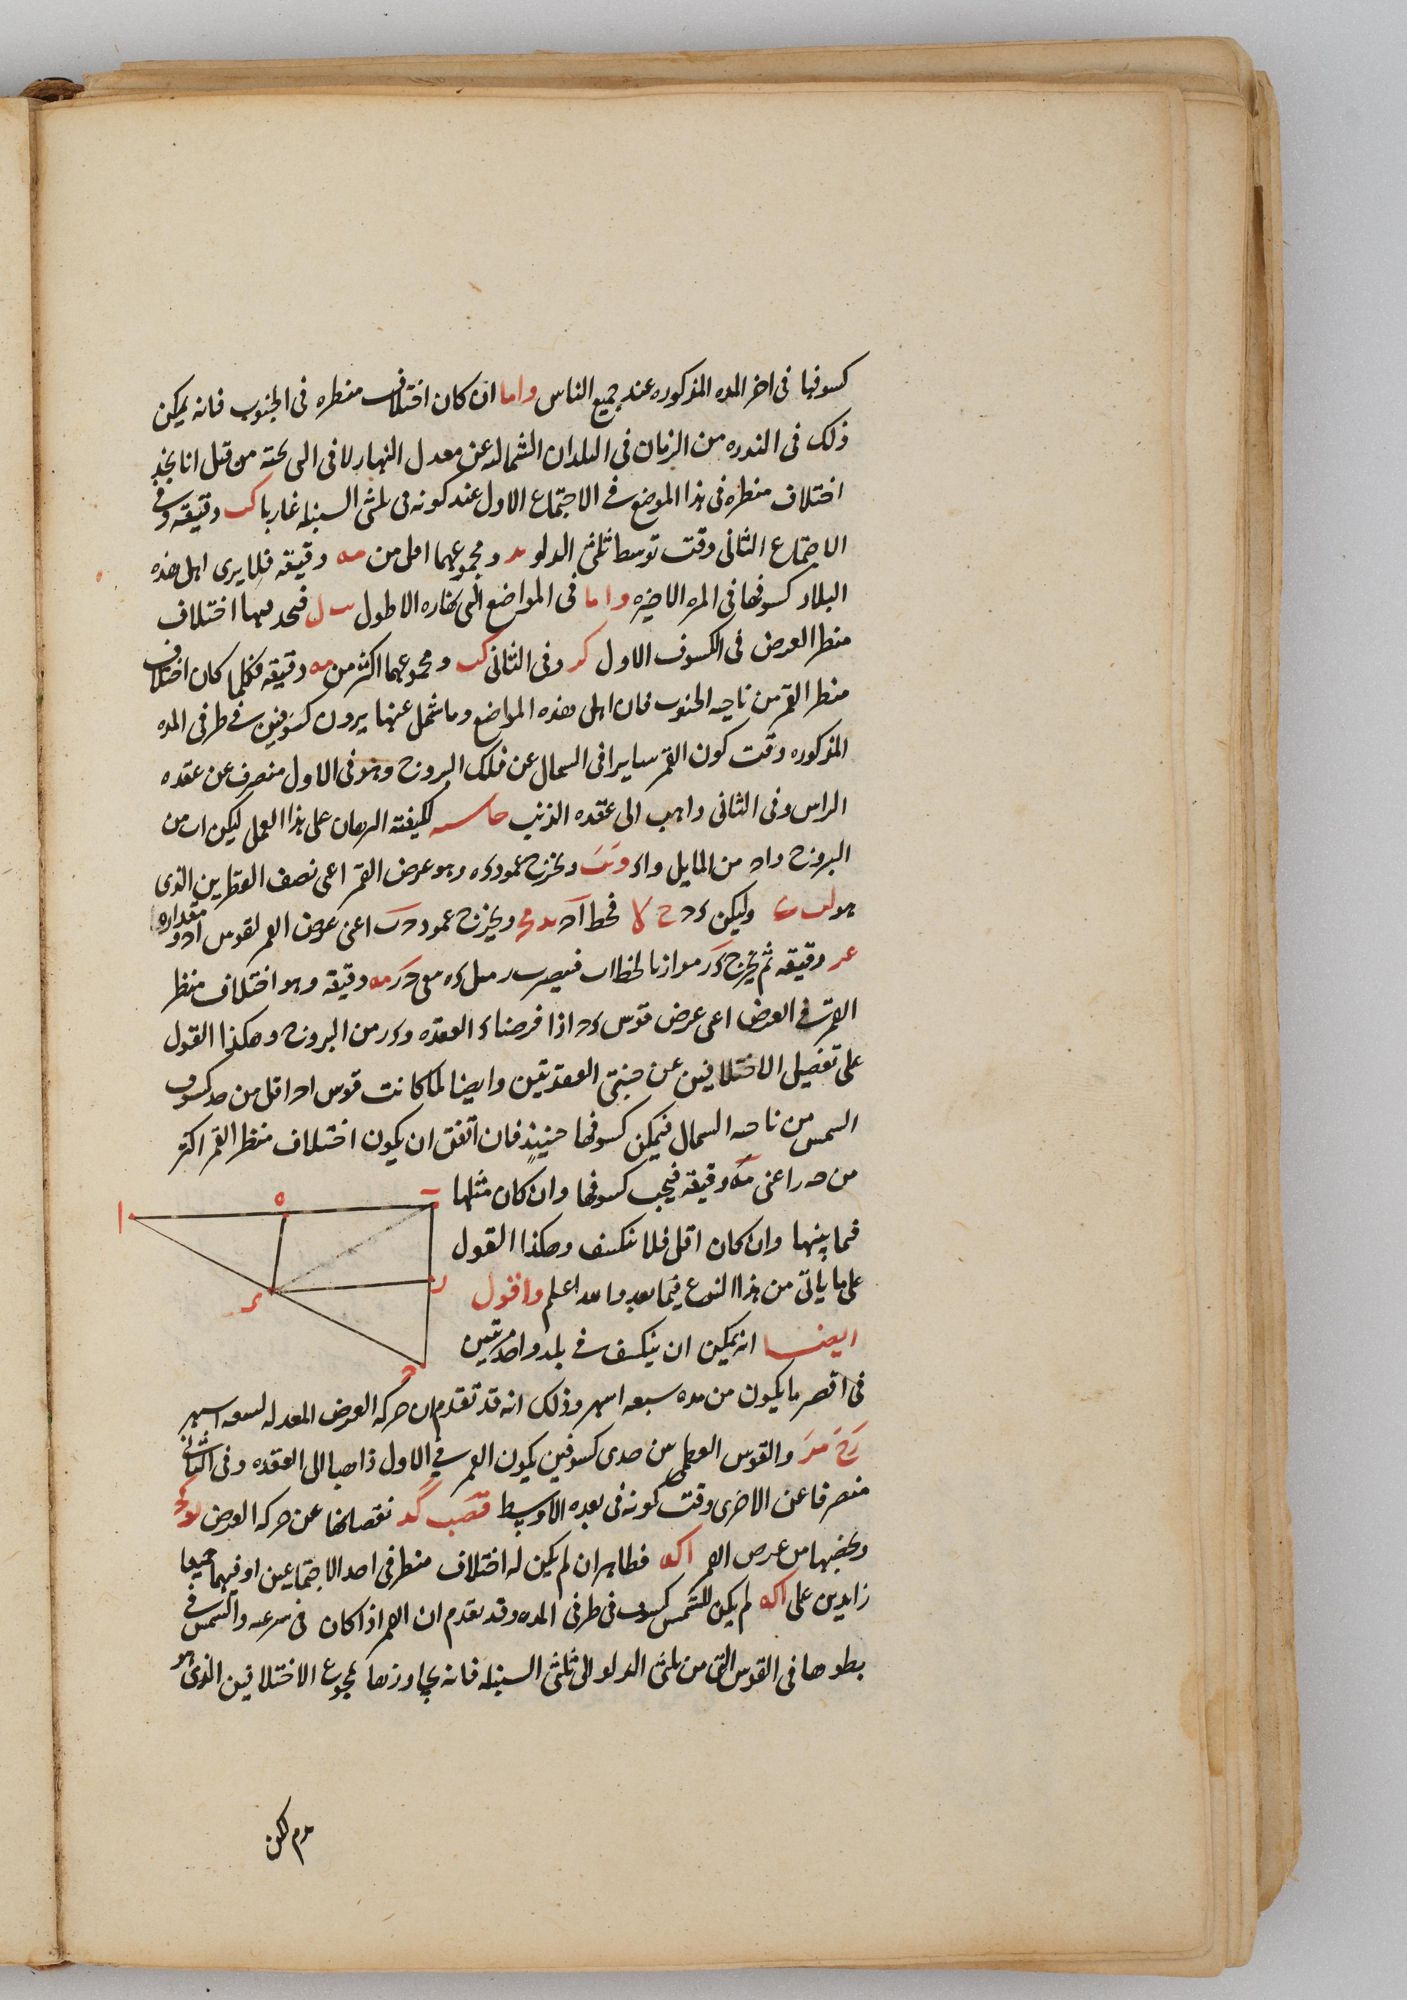 كسوفها فى اخر المده المذكوره عند جميع الناس واما ان كان اختلاف منظره فى الجنوب فانه يمكن
ذلك فى الندره من الزمان فى البلدان الشماليه عن معدل النهار لا فى التى تحته من قبل انا نجد
اختلاف منظره فى هذا الموضع فى الاجتماع الاول عند كونه فى ثلثى السنبله غاربا كب دقيقه وفى
الاجتماع الثانى وقت توسط ثلثى الدلو يد ومجموعهما اقل من مه دقيقه فلا يرى اهل هذه
البلاد كسوفها فى المره الاخيره واما فى المواضع التى نهاره الاطول يب ل فنجد فيها اختلاف
منظر العرض فى الكسوف الاول كد وفى الثانى كب ومجموعهما اكثر من مه دقيقه فكلما كان اختلاف
منظر القمر من ناحيه الجنوب فان اهل هذه المواضع وما شمل عنها يرون كسوفين فى طرفى المده
المذكوره وقت كون القمر سايرا فى الشمال عن فلك البروج وهو فى الاول منصرف عن عقده
الراس وفى الثانى ذاهب الى عقده الذنب حاشيه لكيفيه البرهان على هذا العمل ليكن اب من
البروج واح من المايل واء ويخرج عمود ءه وهو عرض القمر اعنى نصف القطرين الذى
هو وليكن ءح فخط اح ويخرج عمود حب اعنى عرض القمر لقوس اح ومقداره
دقيقه ثم يخرج ءر موازيا لخط اب فيصير بر مثل ءه بقى حر مه دقيقه وهو اختلاف منظر
القمر فى العرض اعنى عرض قوس ءح اذا فرضنا ء العقده وءر من البروج وهكذا القول
على تفصيل الاختلافين عن جنبتى العقدتين وايضا لما كانت قوس اح اقل من حد كسوف
الشمس من ناحيه الشمال فيمكن كسوفها حينيذ فان اتفق ان يكون اختلاف منظر القمر اكثر
من حر اعنى مه دقيقه فيجب كسوفها وان كان مثلها
فما بينها وان كان اقل فلا تنكسف وهكذا القول
على ما ياتى من هذا النوع فيما بعد والله اعلم واقول
ايضا انه يمكن ان ينكسف فى بلد واحد مرتين
فى اقصر ما يكون من مده سبعه اشهر وذلك انه قد تقدم ان حركه العرض المعدله لسبعه اشهر
والقوس العظمى من حدى كسوفين يكون القمر فى الاول ذاهبا الى العقده وفى الثانى
منصرفا عن الاخرى وقت كونه فى بعده الاوسط قصب كد نقصانها عن حركه العرض
ويخصها من عرض القمر اكه فظاهر ان لم يكن له اختلاف منظر فى احد الاجتماعين او فيهما جميعا
زايدين على اكه لم يكن للشمس كسوف فى طرفى المده وقد تقدم ان القمر اذا كان فى سرعه والشمس فى
بطوها فى القوس التى من ثلثى الدلو الى ثلثى السنبله فانه يجاوزها بمجموع الاختلافين الذى هو
ا ه ب
ء ر
ح